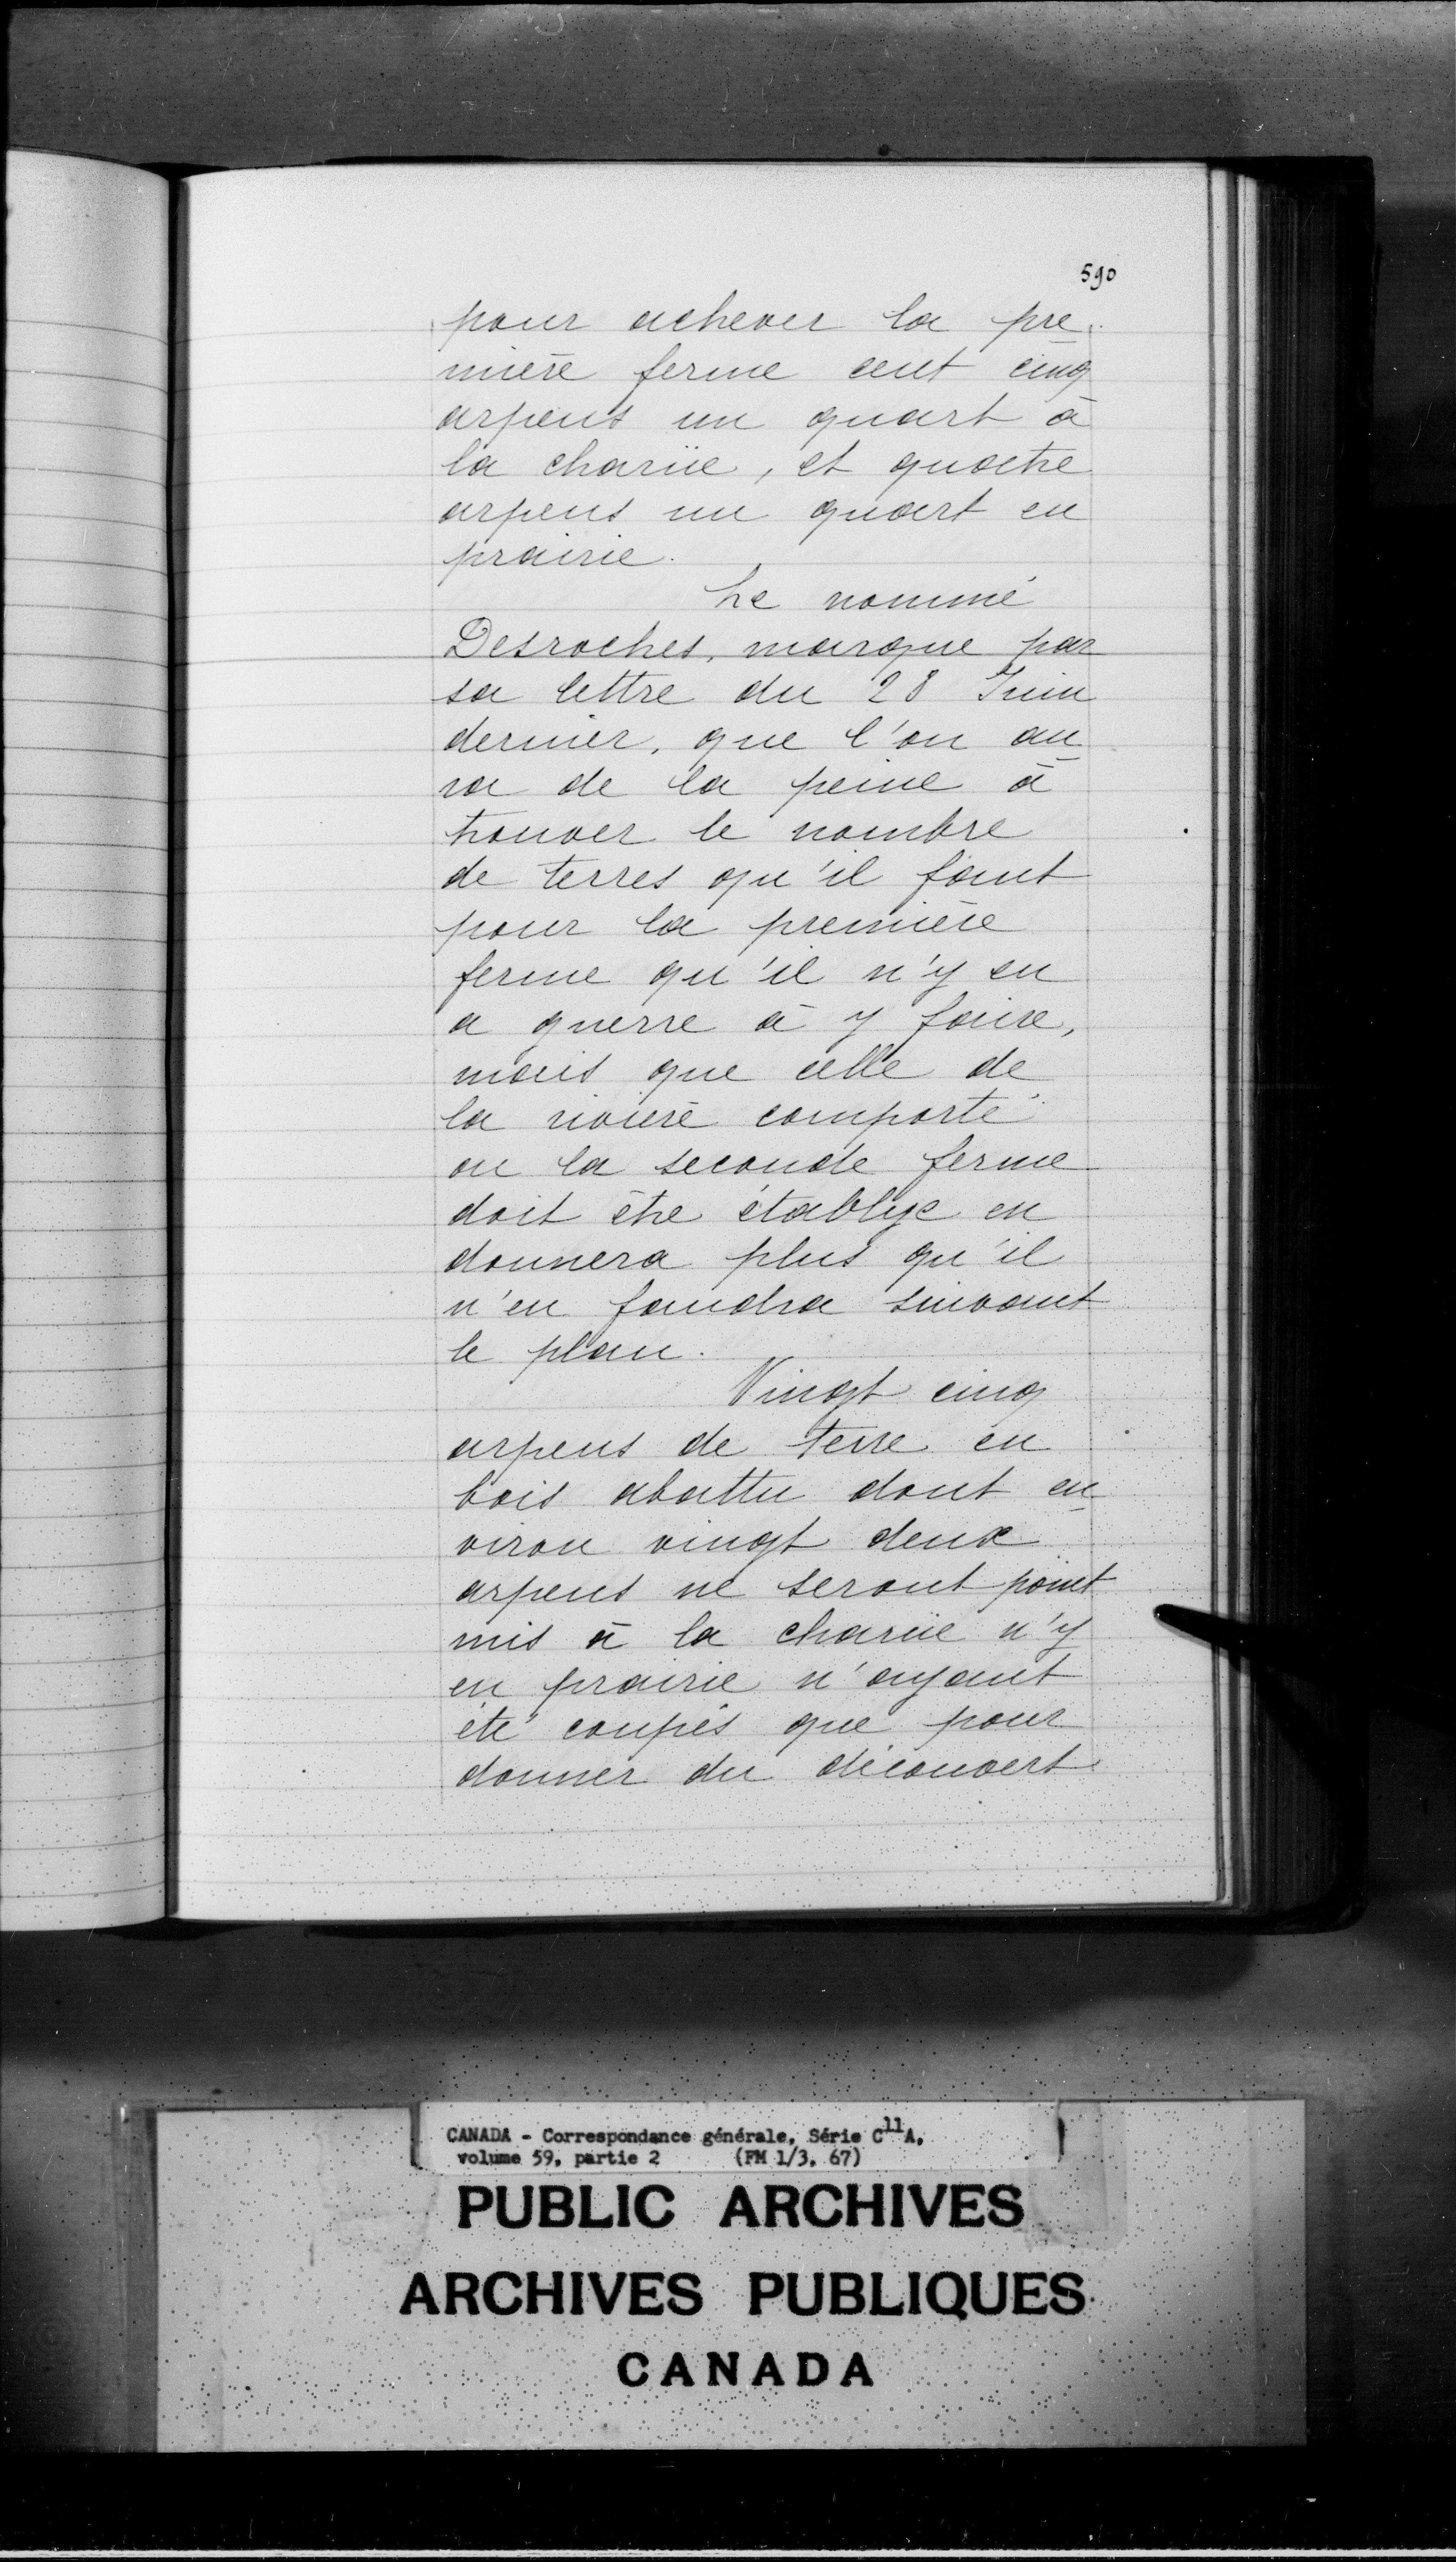 590
pour achever la pre
mière ferme cent cinq
arpens un quart à
la charüe, et quatre
arpens un quart en
prairie.
Le nommé
Desroches, marque par
sa lettre du 28 Juin
dernier, que l'on au
ra de la peine à
trouver le nombre
de terres qu'il faut
pour la première
ferme qu'il n'y en
a guerre à y faire,
mais que celle de
la rivière comporté
ou la seconde ferme
doit être établye en
donnera plus qu'il
n'en faudra suivant
le plan.
Vingt cinq
arpens de terre en
bois abattu dont en
viron vingt deux
arpens ne seront point
mis à la charüe n'y
en prairie n'ayant
été coupés que pour
donner du découvert
CANADA - Correspondance générale, Série C11A,
volume 59, partie 2 (FM 1/3, 67)
PUBLIC ARCHIVES
ARCHIVES PUBLIQUES
CANADA